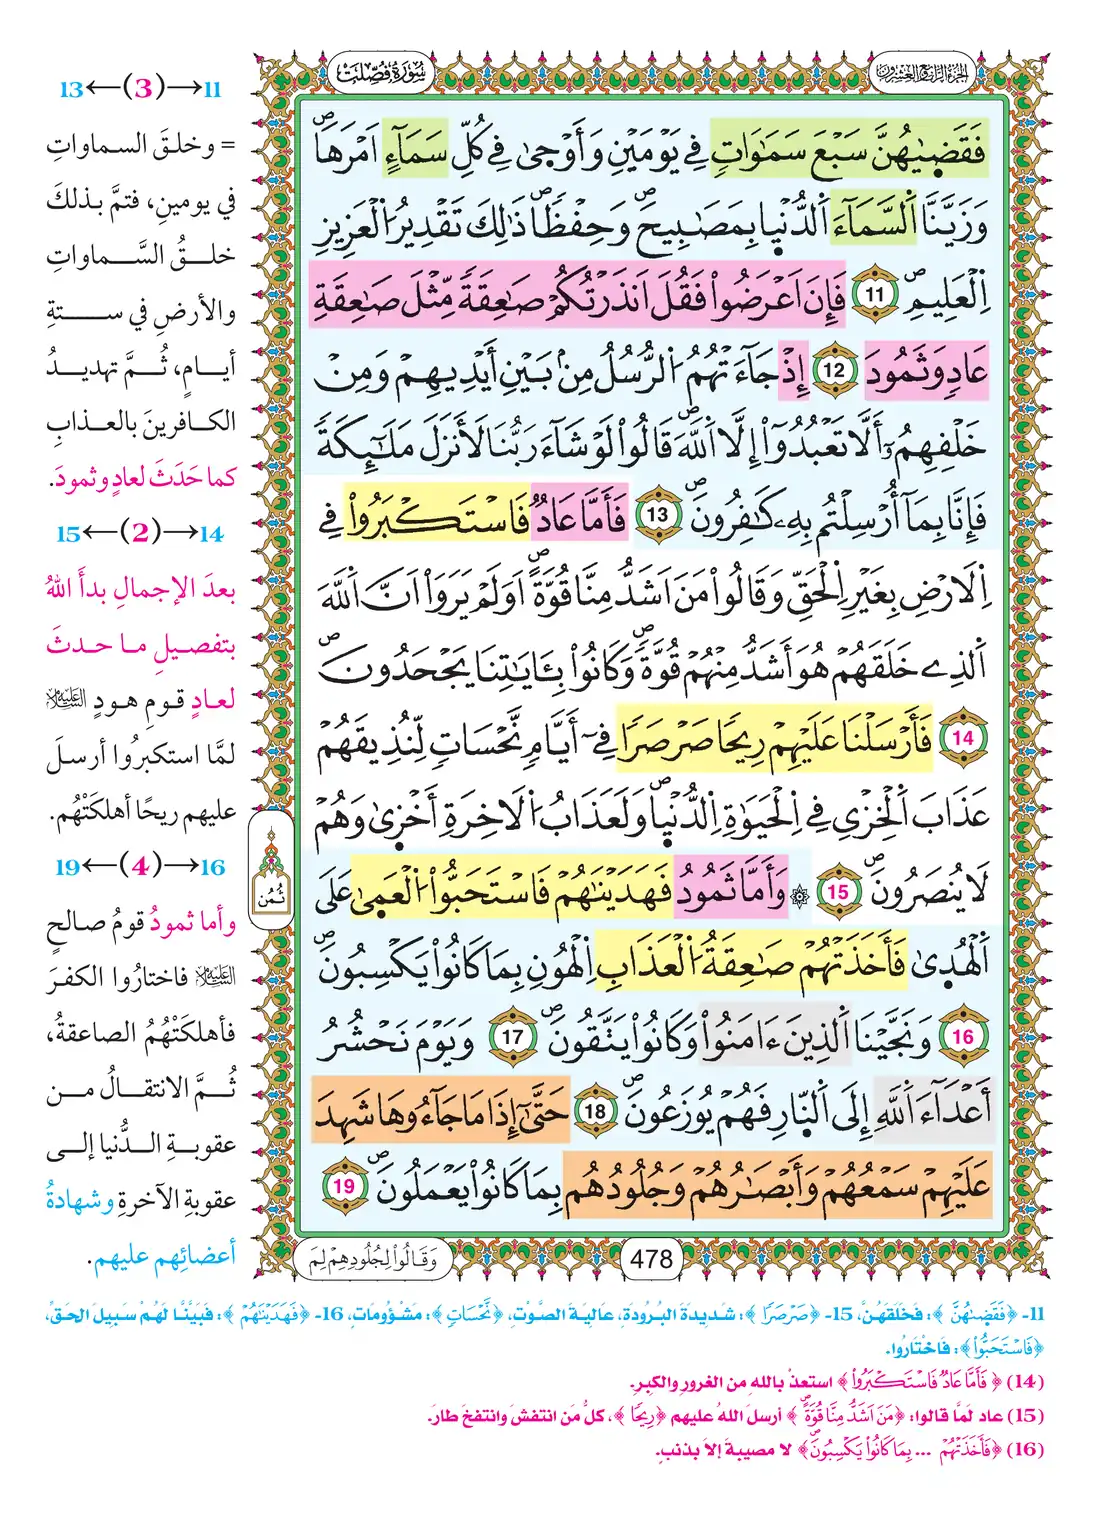 الجزء الرابع والعشرون
سورة فصلت
فَقَضَىٰهُنَّ سَبْعَ سَمَٰوَاتٖ فِے يَوْمَيْنِ وَأَوْحَىٰ فِے كُلِّ سَمَآءٍ اَمْرَهَاۖ
وَزَيَّنَّا اَ۬لسَّمَآءَ اَ۬لدُّنْي۪ا بِمَصَٰبِيحَۖ وَحِفْظاٗۖ ذَٰلِكَ تَقْدِيرُ اُ۬لْعَزِيزِ
اِ۬لْعَلِيمِۖ 11 فَإِنَ اَعْرَضُواْ فَقُلَ اَنذَرْتُكُمْ صَٰعِقَةٗ مِّثْلَ صَٰعِقَةِ
عَادٖ وَثَمُودَ 12 إِذْ جَآءَتْهُمُ اُ۬لرُّسُلُ مِنۢ بَيْنِ أَيْدِيهِمْ وَمِنْ
خَلْفِهِمُۥٓ أَلَّا تَعْبُدُوٓاْ إِلَّا اَ۬للَّهَۖ قَالُواْ لَوْ شَآءَ رَبُّنَا لَأَنزَلَ مَلَٰٓئِكَةٗ
فَإِنَّا بِمَآ أُرْسِلْتُم بِهِۦ كَٰفِرُونَۖ 13 فَأَمَّا عَادٞ فَاسْتَكْبَرُواْ فِے
اِ۬لَارْضِ بِغَيْرِ اِ۬لْحَقِّ وَقَالُواْ مَنَ اَشَدُّ مِنَّا قُوَّةًۖ اَوَلَمْ يَرَوَاْ اَنَّ اَ۬للَّهَ
اَ۬لذِے خَلَقَهُمْ هُوَ أَشَدُّ مِنْهُمْ قُوَّةٗۖ وَكَانُواْ بِـَٔايَٰتِنَا يَجْحَدُونَۖ
14 فَأَرْسَلْنَا عَلَيْهِمْ رِيحاٗ صَرْصَراٗ فِےٓ أَيَّامٖ نَّحْسَاتٖ لِّنُذِيقَهُمْ
عَذَابَ اَ۬لْخِزْيِ فِے اِ۬لْحَيَوٰةِ اِ۬لدُّنْي۪اۖ وَلَعَذَابُ اُ۬لَاخِرَةِ أَخْزَىٰ وَهُمْ
لَا يُنصَرُونَۖ 15 ۞ وَأَمَّا ثَمُودُ فَهَدَيْنَٰهُمْ فَاسْتَحَبُّواْ اُ۬لْعَمَىٰ عَلَى
اَ۬لْهُد۪ىٰ فَأَخَذَتْهُمْ صَٰعِقَةُ اُ۬لْعَذَابِ اِ۬لْهُونِ بِمَا كَانُواْ يَكْسِبُونَۖ
16 وَنَجَّيْنَا اَ۬لذِينَ ءَامَنُواْ وَكَانُواْ يَتَّقُونَۖ 17 وَيَوْمَ نَحْشُرُ
أَعْدَآءَ اَ۬للَّهِ إِلَى اَ۬لنّ۪ارِ فَهُمْ يُوزَعُونَۖ 18 حَتَّىٰٓ إِذَا مَا جَآءُوهَا شَهِدَ
عَلَيْهِمْ سَمْعُهُمْ وَأَبْصَٰرُهُمْ وَجُلُودُهُم بِمَا كَانُواْ يَعْمَلُونَۖ 19
478
وَقَالُواْ لِجُلُودِهِمْ لِمَ
ثُمُن
11←(3)→13
= وخلقَ السماواتِ
في يومينِ، فتمَّ بذلكَ
خلقُ السَّماواتِ
والأرضِ في ستةِ
أيامٍ، ثُمَّ تهديدُ
الكافرينَ بالعذابِ
كما حَدَثَ لعادٍ وثمودَ.
14←(2)→15
بعدَ الإجمالِ بدأَ اللهُ
بتفصيلِ ما حدثَ
لعادٍ قومِ هودٍ عليه السلام
لمَّا استكبرُوا أرسلَ
عليهم ريحًا أهلكَتْهُم.
16←(4)→19
وأما ثمودُ قومُ صالحٍ
عليه السلام فاختارُوا الكفرَ
فأهلكَتْهُمُ الصاعقةُ،
ثُمَّ الانتقالُ من
عقوبةِ الدُّنيا إلى
عقوبةِ الآخرةِ وشهادةُ
أعضائِهم عليهم.
11- ﴿فَقَضَىٰهُنَّ﴾: فخلقهُنَّ، 15- ﴿صَرْصَرًا﴾: شديدةَ البُرودةِ، عاليةَ الصَّوْتِ، ﴿نَّحْسَاتٍ﴾: مشؤوماتٍ، 16- ﴿فَهَدَيْنَٰهُمْ﴾: فبَيَّنَّا لهُمْ سبيلَ الحقِّ،
﴿فَاسْتَحَبُّواْ﴾: فاختَارُوا.
(14) ﴿فَأَمَّا عَادٌ فَاسْتَكْبَرُواْ﴾ استعذْ باللهِ من الغرورِ والكِبرِ.
(15) عاد لمَّا قالوا: ﴿مَنَ اَشَدُّ مِنَّا قُوَّةًۖ﴾ أرسلَ اللهُ عليهم ﴿رِيحًا﴾، كلُّ مَن انتفشَ وانتفخَ طارَ.
(16) ﴿فَأَخَذَتْهُمْ ... بِمَا كَانُواْ يَكْسِبُونَۖ﴾ لا مصيبةَ إلا بذنبٍ.